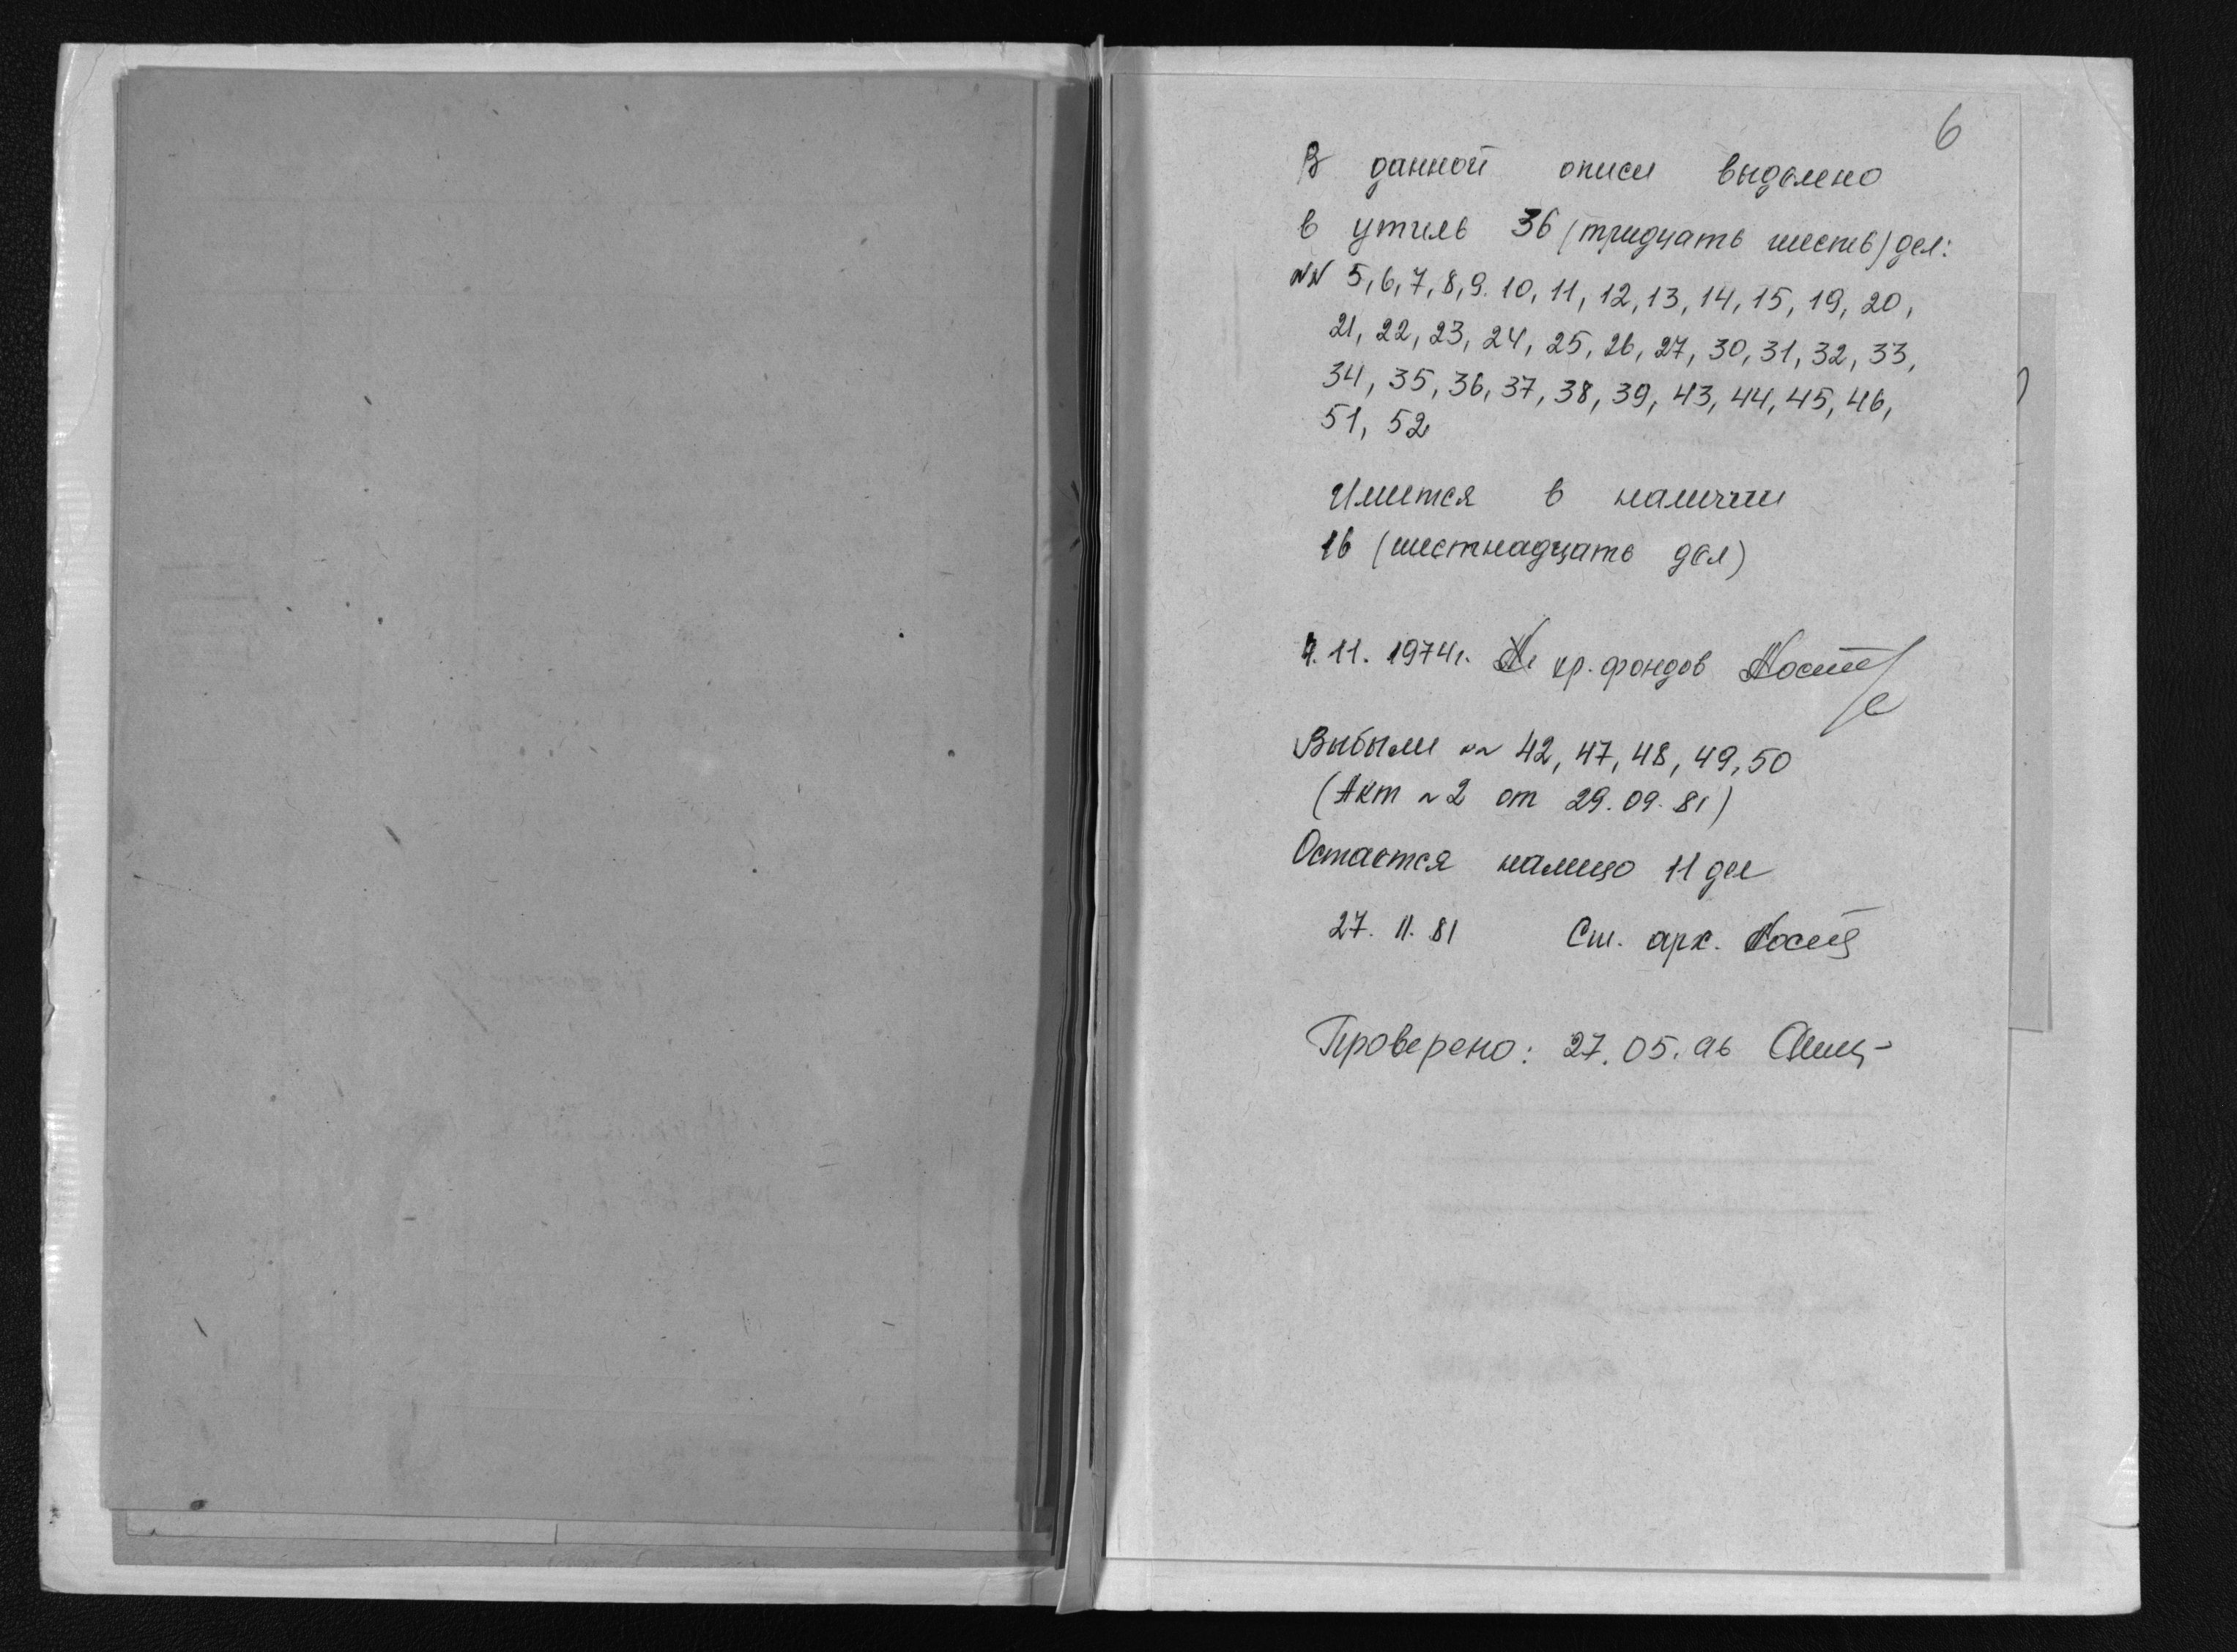 6
В данной описи выделено
в утиль 36 (тридцать шесть) дел:
NN 5, 6, 7, 8, 9. 10, 11, 12, 13, 14, 15, 19, 20,
21, 22, 23, 24, 25, 26, 27, 30, 31, 32, 33,
34, 35, 36, 37, 38, 39, 43, 44, 45, 46,
51, 52
Имеется в наличии
16 (шестнадцать дел)
11. 1974г. хр. фондов
Выбыли NN 42, 47, 48, 49, 50
(Акт N 2 от 29.09.81)
Остается налицо 11 дел
27. 11. 81 Ст. арх.
Проверено: 27.05.96